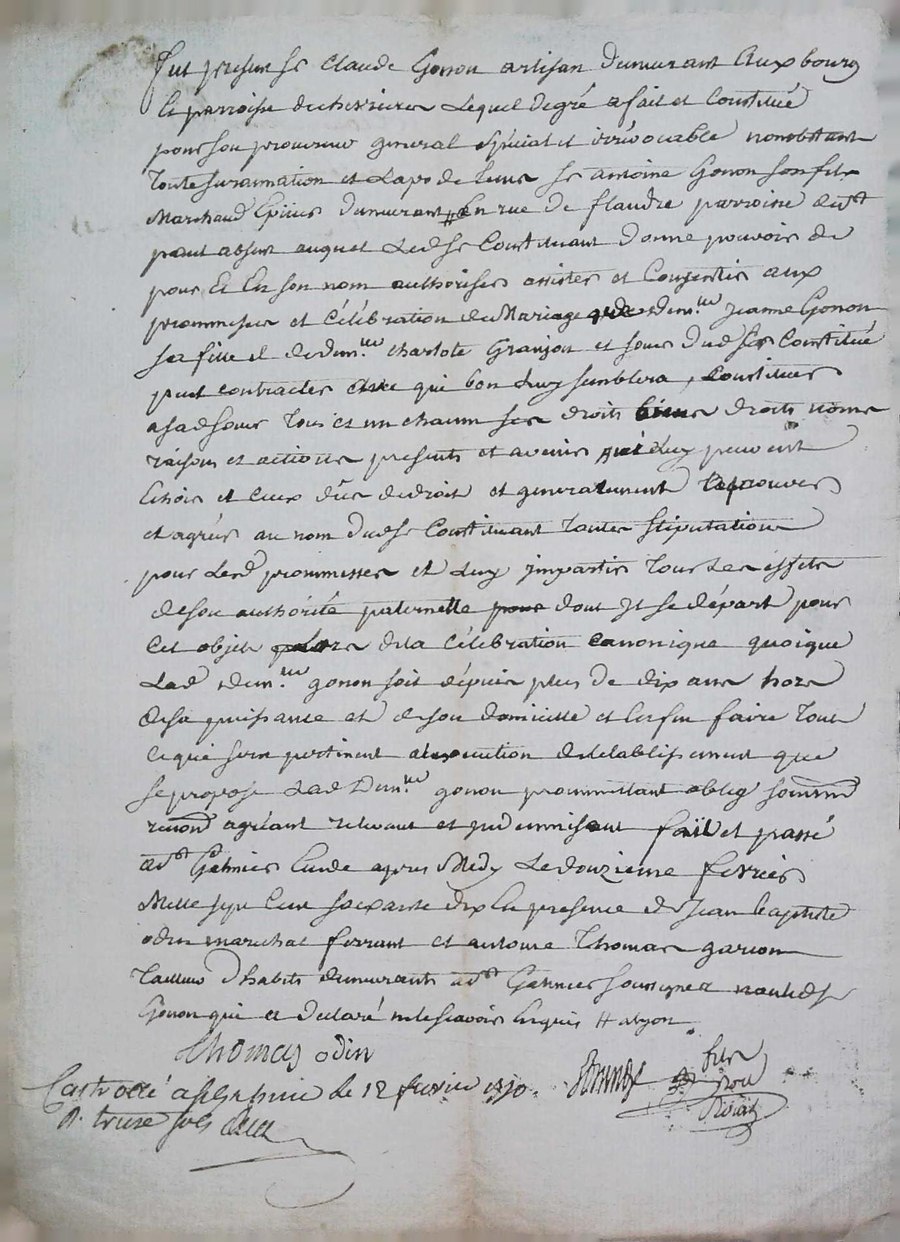 Fut present Sr Claude Gonon artisan demurant aux bourg
et parroisse de chevrieres Lequel de gré a fait et Constitué
pour son procureur general spécial et irrévocable nonobstant
toute surannation et Laps de temps Sr antoine Gonon son fils
Marchand Epicier demurant # En rue de flandre parroisse de St
paul absent auquel Led Sr Constituant donne pouvoir de
pour Et En son nom authoriser assister et Consentir aux
prommesses et Célébration du Mariage que de dem.lle jeanne Gonon
sa fille et de dem.lle charlote Granjon et soeur dud Sr Constitué
peut contracter avec qui bon Luy semblera, Constituer
a sad soeur tous et un chacun ses droits biens droits noms
raisons et actions presents et avenir qui Luy peuvent
Echoir et Eux dûs de droit et generalement approuver
et agréer au nom dud Sr Constituant toutes stipulations
pour Lesd prommesses et Luy impartir tous Les effets
de son authorité paternelle pour dont Il se départ pour
Cet objet de la Célébration canonique quoique
Lad dem.lle gonon soit dépuis plus de dix ans hors
de sa puissance et de son domicille et Enfin faire tout
ce qui sera pertinent a Lexecution de Letablissement que
se propose Lad Dem.lle gonon prommettant oblig soummd
renond agréant relevant et indemnisant fait et passé
a St Galmier Etude apres Midy Le douzieme fevrier
Mille sept Cent soixante dix En presence de Jean baptiste
odin marechal ferrant et antoine Thomas garcon
tailleur d'habits demurants a St Galmier soussignez non led Sr
Gonon qui a declaré ne le scavoir Enquis # a Lyon
Thomas odin
Controllé a St Galmier le 12 fevrier 1770
R. treize sols